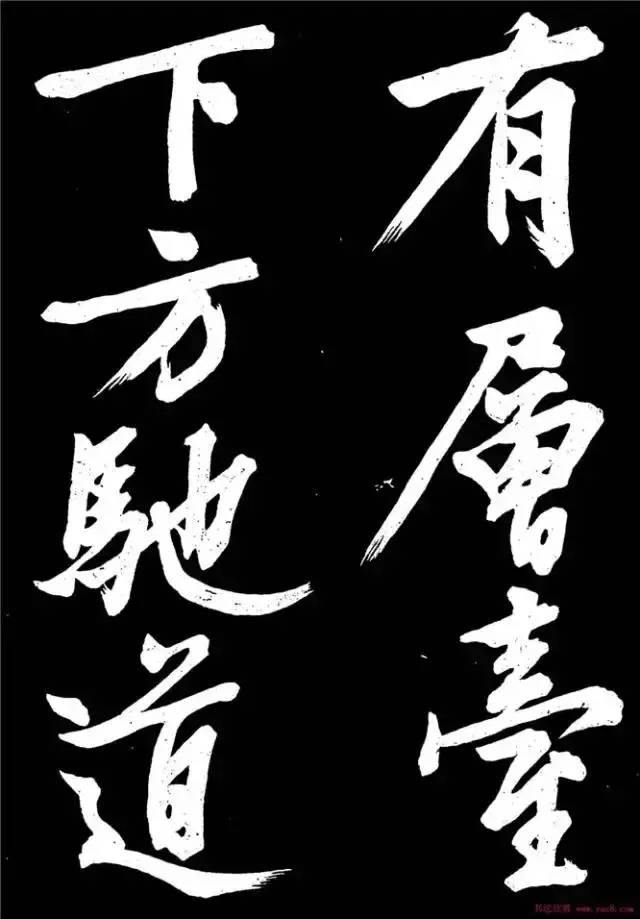 有層臺
下方馳道
书法欣赏 www.yac8.com